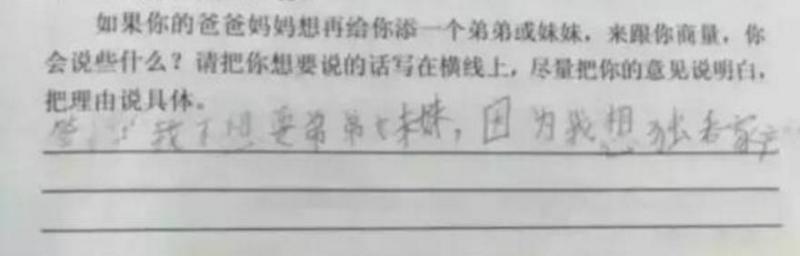 如果你的爸爸妈妈想再给你添一个弟弟或妹妹，来跟你商量，你
会说些什么？请把你想要说的话写在横线上，尽量把你的意见说明白，
把理由说具体。
答：我不想要弟弟妹妹，因为我想独吞家产